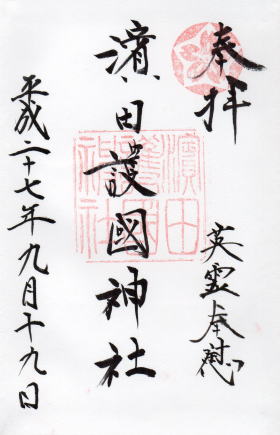 奉拝
英霊奉慰
濱田護國神社
濱田護國神社
平成二十七年九月十九日